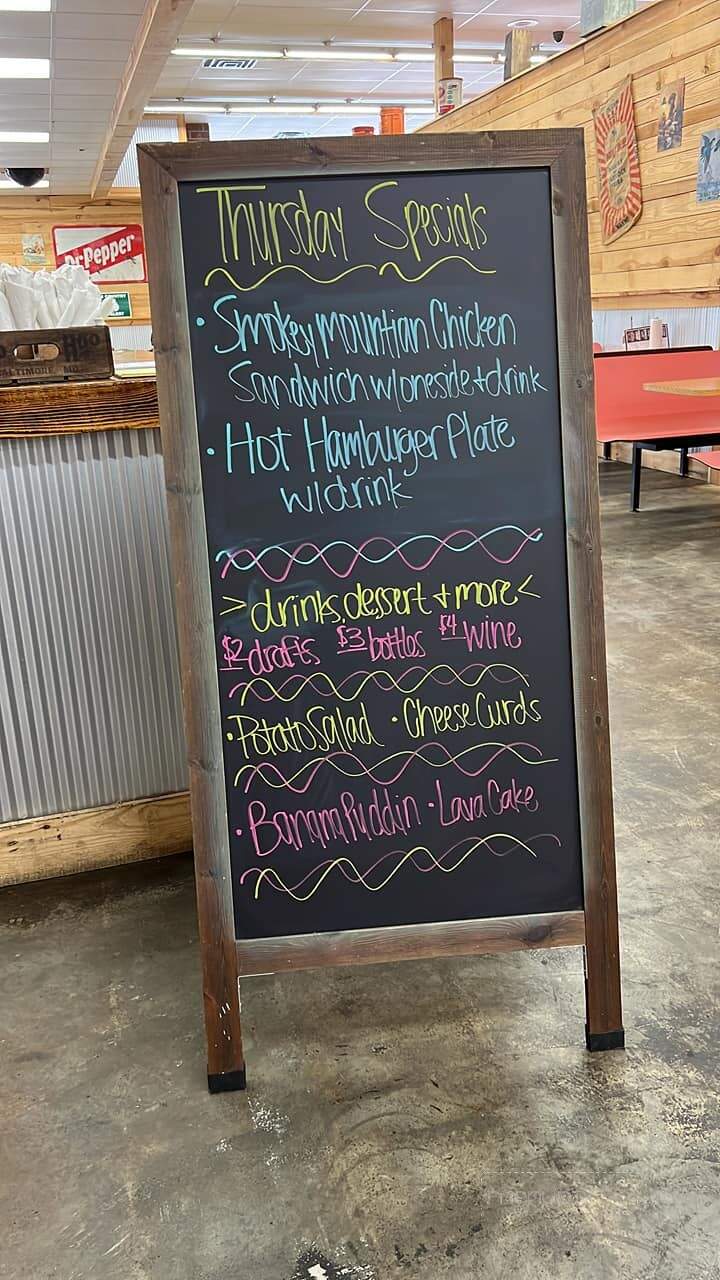 Thursday Specials
• Smokey Mountian Chicken
Sandwich w/oneside+drink
• Hot Hamburger Plate
w/drink
> drinks, dessert + more <
$2 drafts $3 bottles $4 wine
• Potato Salad • Cheese Curds
• Banana Puddin • Lava Cake
Dr Pepper
BALTIMORE MD